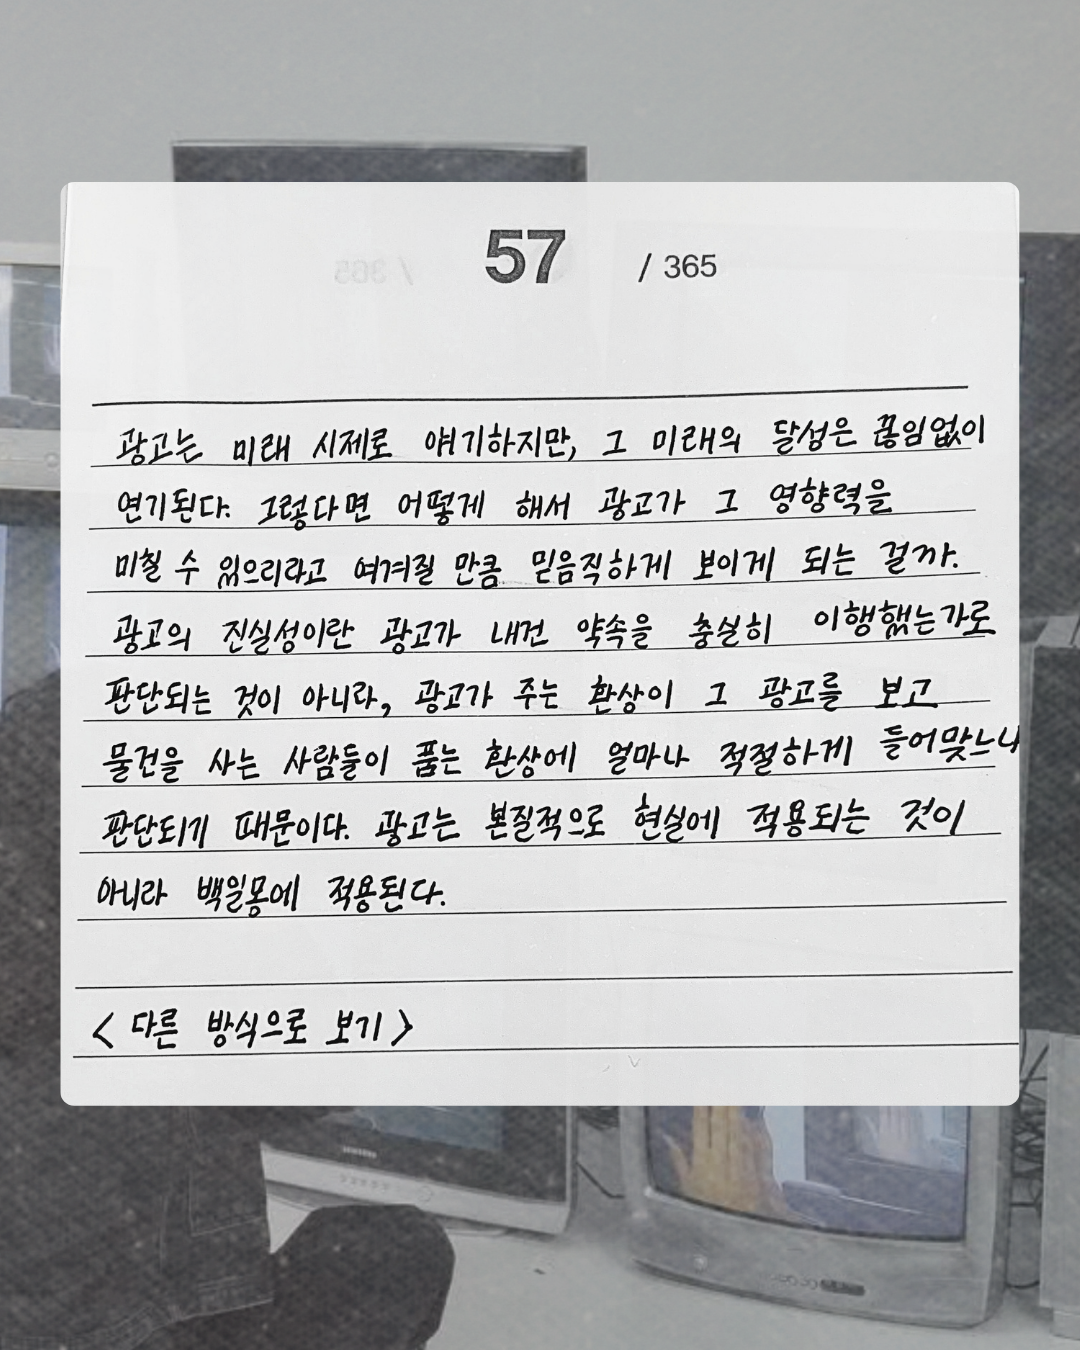 57 / 365
광고는 미래 시제로 얘기하지만, 그 미래의 달성은 끊임없이
연기된다. 그렇다면 어떻게 해서 광고가 그 영향력을
미칠 수 있으리라고 여겨질 만큼 믿음직하게 보이게 되는 걸까.
광고의 진실성이란 광고가 내건 약속을 충실히 이행했는가로
판단되는 것이 아니라, 광고가 주는 환상이 그 광고를 보고
물건을 사는 사람들이 품는 환상에 얼마나 적절하게 들어맞느냐
판단되기 때문이다. 광고는 본질적으로 현실에 적용되는 것이
아니라 백일몽에 적용된다.
<다른 방식으로 보기>